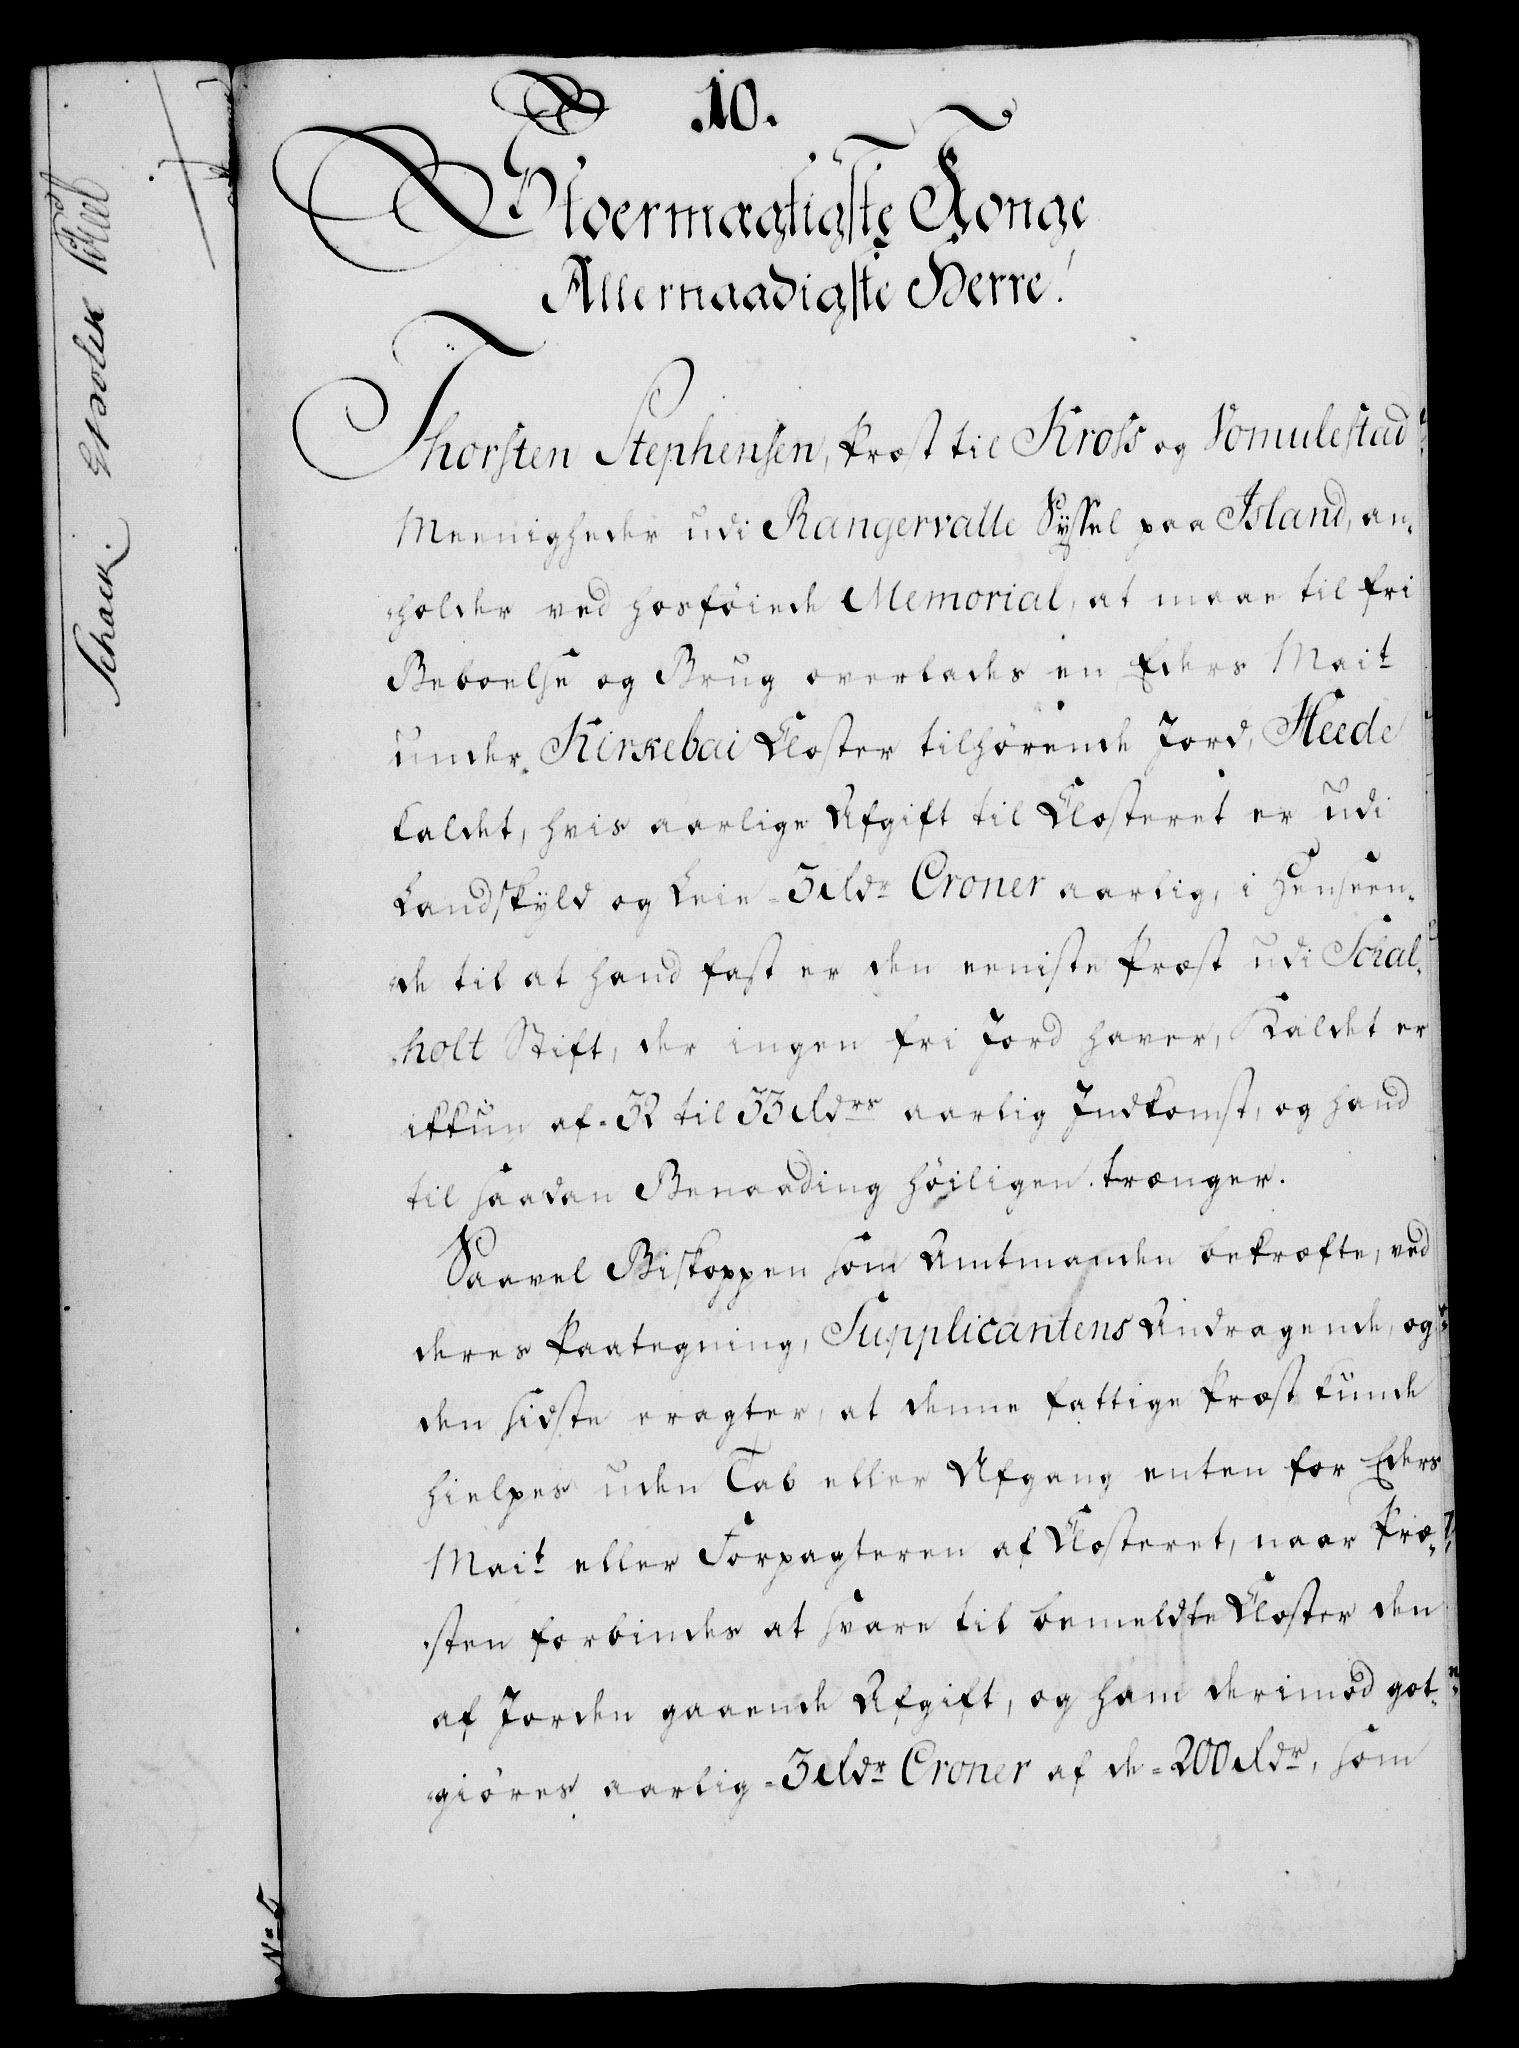 .10.
Stoermægtigste Konge
Allernaadigste Herre!
Thorsten Stephensen, Præst til Kross og Vomulestad
Meenigheder udi Rangervalle Syssel paa Island, an-
holder ved hosføiede Memorial, at maae til fri
Beboelse og Brug overlades en Eders Mait
under Kirkebai Closter tilhørende Jord, Heede
kaldet, hvis aarlige Afgift til Closteret er udi
Landskyld og Leie 3 Rdr Croner aarlig, i Henseen-
de til at hand fast er den eeniste Præst udi Schal-
holt Stift, der ingen fri Jord haver, Kaldet er
ikkun af 32 til 33 Rdrs aarlig Indkomst, og hand
til saadan Benaading høiligen trænger.
Saavel Biskoppen som Amtmanden bekræfte, ved
deres Paategning, Supplicantens Andragende, og
den sidste eragter, at denne fattige Præst kunde
hielpes uden Tab eller Afgang enten for Eders
Mait eller Forpagteren af Closteret, naar Præ-
sten forbindes at svare til bemeldte Closter den
af Jorden gaaende Afgift, og ham derimod got-
giøres aarlig 3 Rdr Croner af de 200 Rdr, som
Schack
No 5